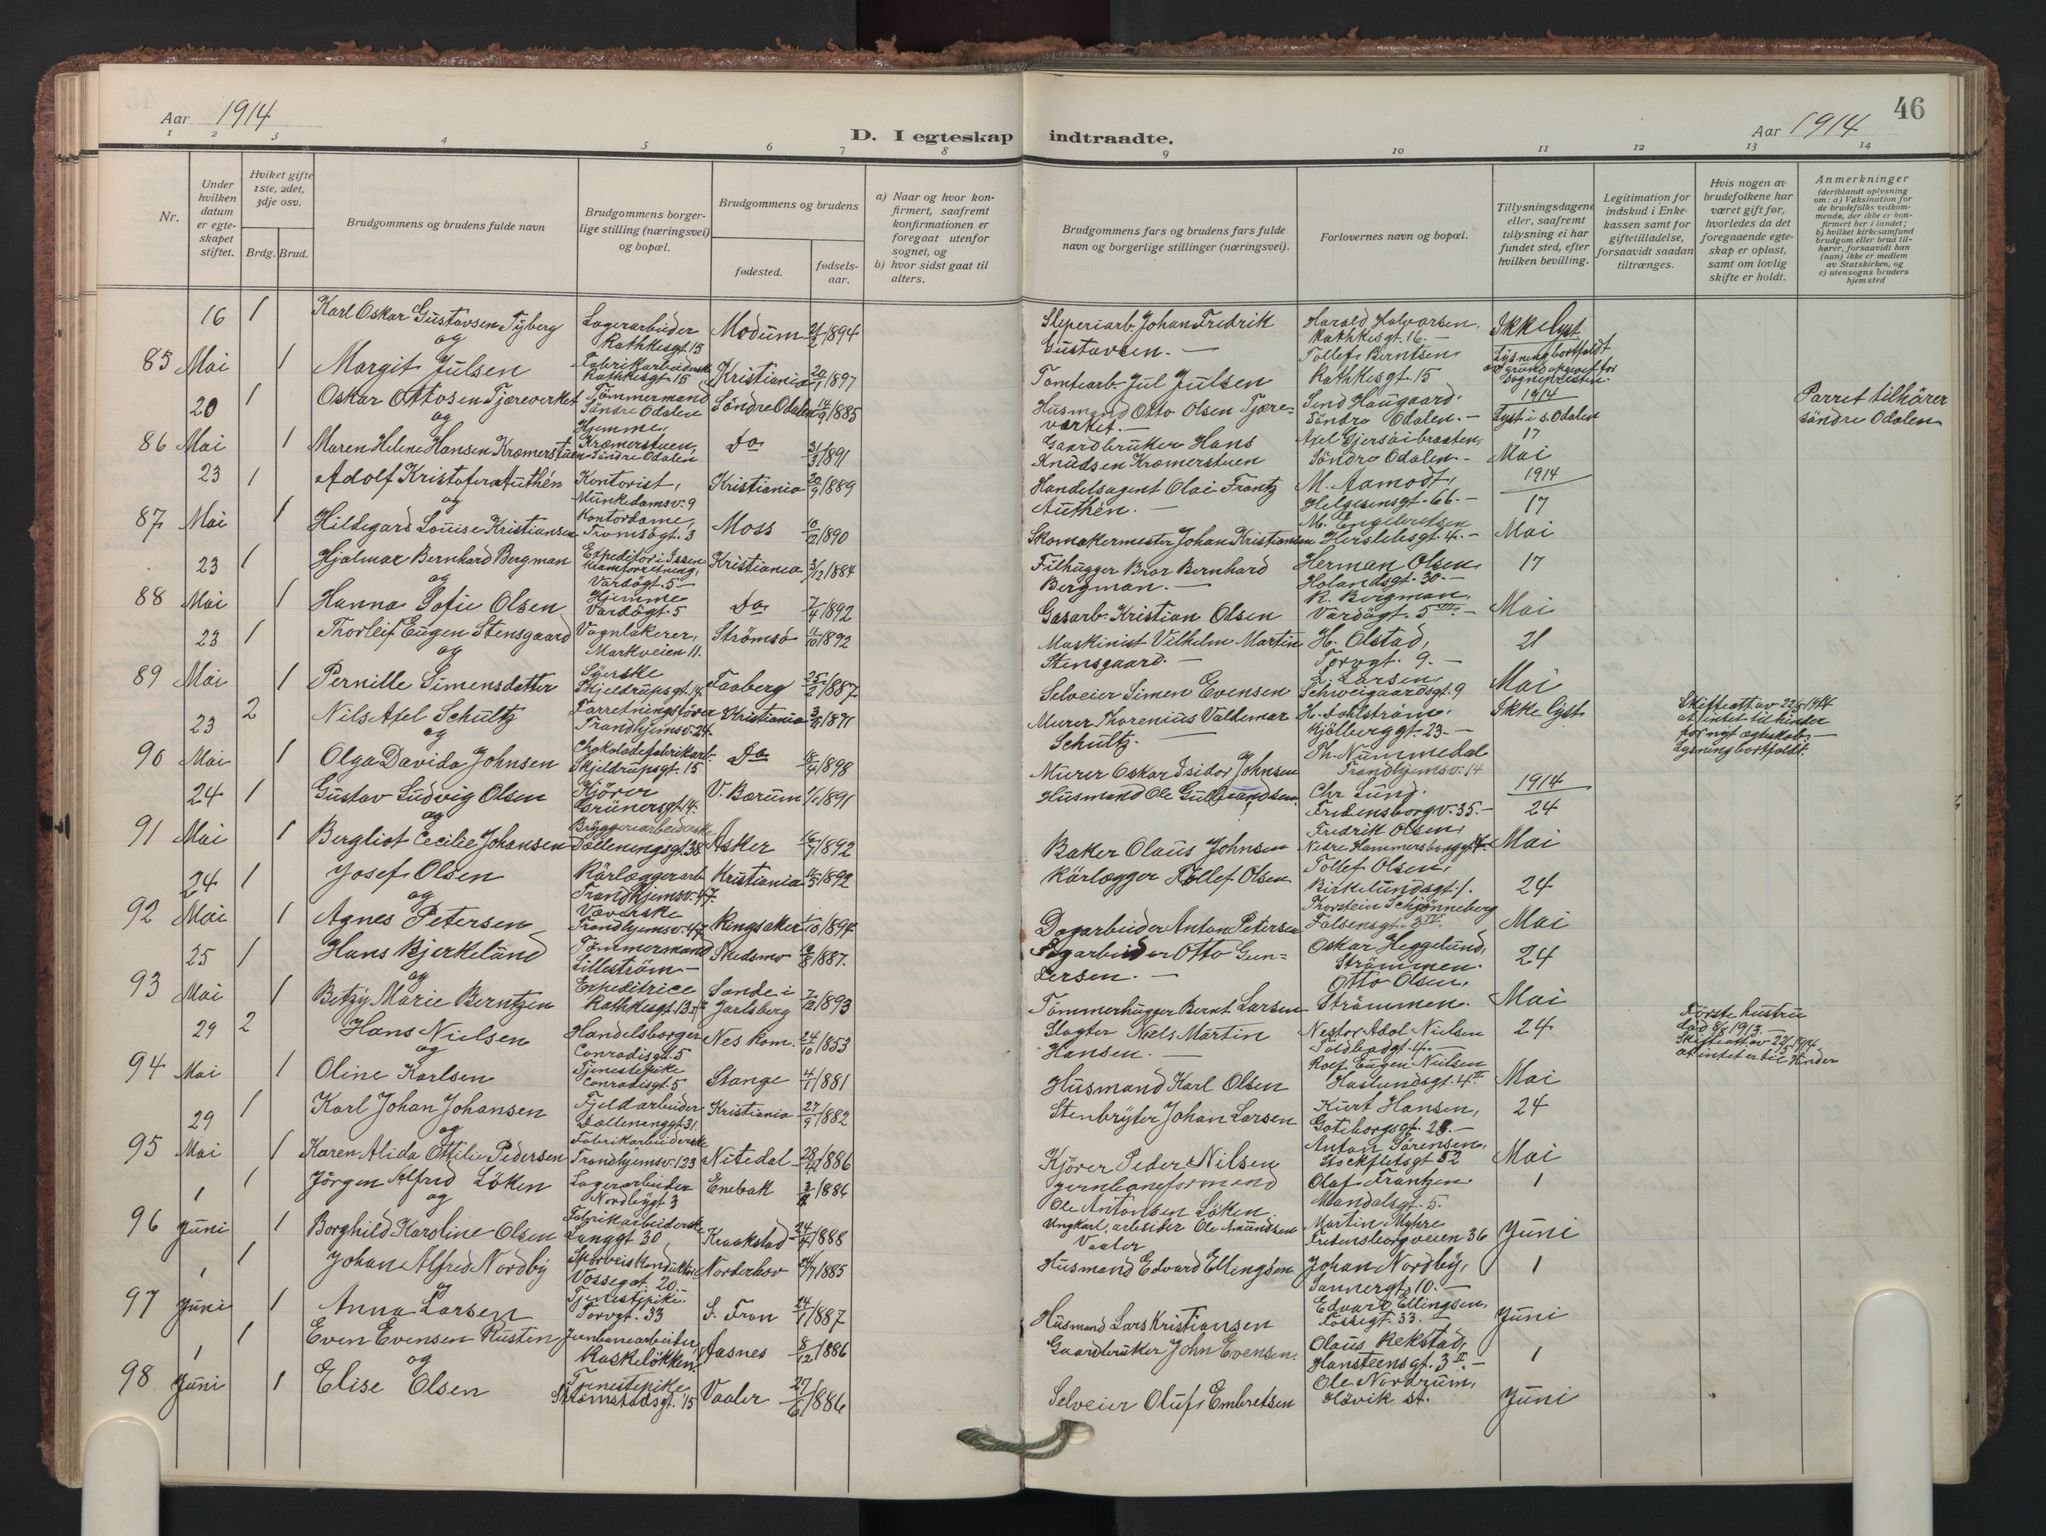 46
Aar 1914
D. I egteskap indtraadte.
Aar 1914
1 2 3 4 5 6 7 8 9 10 11 12 13 14
Nr.
Under hvilken datum er egteskapet stiftet.
Hviket gifte 1ste, 2det, 3dje osv.
Brdg. Brud.
Brudgommens og brudens fulde navn
Brudgommens borgerlige stilling (næringsvei) og bopæl.
Brudgommens og brudens
fødested.
fødselsaar.
a) Naar og hvor konfirmert, saafremt konfirmationen er foregaat utenfor sognet, og
b) hvor sidst gaat til alters.
Brudgommens fars og brudens fars fulde navn og borgerlige stillinger (næringsvei).
Forlovernes navn og bopæl.
Tillysningsdagene eller, saafremt tillysning ei har fundet sted, efter hvilken bevilling.
Legitimation for indskud i Enkekassen samt for giftetilladelse, forsaavidt saadan tiltrænges.
Hvis nogen av brudefolkene har været gift før, hvorledes da det foregaaende egteskap er opløst, samt om lovlig skifte er holdt.
Anmerkninger
(deriblandt oplysning om: a) Vaksination for de brudefolks vedkommende, der ikke er konfirmert her i landet; b) hvilket kirkesamfund brudgom eller brud tilhører, forsaavidt han (hun) ikke er medlem av Statskirken, og c) utensogns bruders hjemsted
85 16 Mai 1 Karl Oskar Gustavsen Tyberg Lagerarbeider Rathkesgt. 15 Modum 21/2 1894 Sliperiarb. Johan Fredrik Gustavsen.- Harald Halvorsen, Rathkesgt. 16.- Ikke lyst
og
1 Margit Julsen Fabrikarbeiderske Rathkesgt 15 Kristiania 20/1 1897 Tomtearb. Jul Julsen Tollef Berntsen Rathkesgt. 15 Lysning bortfaldt
86 20 Mai 1 Oskar Ottosen Tjæreverket Tømmermand Söndre Odalen Söndre Odalen 14/9 1885 Husmand Otto Olsen Tjæreverket.- Haugaard. Söndre Odalen.- 1914 Lyst i S. Odalen Parret tilhörer söndre Odalen
og
1 Maren Helene Hansen Kræmerstuen Hjemme, Kræmerstuen, Söndre Odalen Do 31/3 1891 Gaardbruker Hans Knudsen Kræmerstuen Söndre Odalen.- 17 Mai
87 23 Mai 1 Adolf Kristofer Authén Kontorist, Munkedamsv. 9 Kristiania 20/9 1889 Handelsagent Olai Frantz Authén.- M. Aamodt, Helgesensgt. 66.- 1914 17
og
1 Hildegard Louise Kristiansen Kontordame, Tromsögt. 3 Moss 10/2 1890 Skomakermester Johan Kristiansen M. Engebretsen Herslebsgt. 4.- Mai
88 23 Mai 1 Hjalmar Bernhard Bergman Vardögt. 5- Kristiania 3/12 1884 Filhugger Bror Bernhard Bergman.- Herman Olsen Holandsgt. 30.- 17
og
1 Hanna Sofie Olsen Hjemme Vardögt. 5 Do 7/4 1892 Gasarb. Kristian Olsen R. Bergman, Vardögt. 5 III.- Mai
89 23 Mai 1 Thorleif Eugen Stensgaard Vognlakerer, Markveien 11. Strömsö 1892 Maskinist Vilhelm Martin Stensgaard.- H. Olstad, Torvgt. 9.- 21
og
1 Pernille Simensdatter Syerske Skjeldrupsgt. 14 Faaberg 25/2 1887 Selveier Simen Evensen L. Larsen Schweigaardsgt 9 Mai
90 23 Mai 2 Nils Axel Schultz Trondhjemsv. 24 Kristiania 1891 Murer Thorenius Valdemar Schultz.- H. Dahlström, Kjölberggt. 23.- Ikke lyst Skifteatt av at intet til hinder for nyt ægteskab.- Lysning bortfaldt.
og
1 Olga Davida Johnsen Chokoladefabrikarb. Skjeldrupsgt. 15 Do 1898 Murer Oskar Isidor Johnsen Th. Nummedal Trondhjemsv. 14
91 24 Mai 1 Gustav Ludvig Olsen Kjörer Grünersgt. 4. V. Bærum 1/1 1891 Husmand Ole Gulbrandsen. Chr Lund. Fredensborgv. 35.- 1914 24
og
1 Bergliot Cecilie Johansen Bryggeriarbeiderske Dælleningsgt. 38 Asker 16/7 1892 Baker Olaus Johnsen Fredrik Olsen, Mai
92 24 Mai 1 Josef Olsen Rörlæggerarb. Trondhjemsv. 47. Kristiania 1892 Rörlægger Tollef Olsen Tollef Olsen, Birkelundsgt. 1. 24
og
1 Agnes Petersen Væverske Trondhjemsv. 47 Ringsaker 1/10 1894 Dagarbeider Anton Petersen Thorstein Schjönneberg Falsensgt. 3 IV.- Mai
93 25 Mai 1 Hans Bjerkelund Tömmermand Lilleström- Skedsmo 9/8 1887. Sagarbeider Otto Gundersen.- Oskar Heggelund, Strömmen. 24
og
1 Betzy Marie Berntzen Expeditrice Rathkesgt. 13 II Sande i Jarlsberg 7/12 1893 Tömmerhugger Bernt Larsen Otto Olsen, Strömmen. Mai
94 29 Mai 2 Hans Nielsen Handelsborger Conradisgt. 5 Nes Rom. 24/10 1853 Slagter Niels Martin Hansen.- Nestor Adol. Nielsen Toldbodgt. 4.- 24 Förste hustru död 8/8 1913.- Skifteatt av 22/5 1914 at intet er til hinder
og
1 Oline Karlsen Tjenestepike Conradisgt. 5 Stange 4/1 1881 Husmand Karl Olsen Rolf Eugen Nielsen Haslundsgt. 4 II Mai
95 29 Mai 1 Karl Johan Johansen Fjeldarbeider Dælleninggt 31. Kristiania 27/9 1882 Stenbryter Johan Larsen Kurt Hansen, Göteborgsgt. 28.- 24
og
1 Karen Alida Ottilie Pedersen Fabrikarbeiderske Trondhjemsv. 123 Nitedal 1886 Kjörer Peder Nilsen Anton Sörensen. Stockfletsgt 52 Mai
96 1 Juni 1 Jörgen Alfred Löken Lagerarbeider Nordbygt 3 Enebak 1886 Jernbaneformand Ole Antonsen Löken. Olaf Frantzen Mandalsgt. 5. 1
og
1 Borghild Karoline Olsen Fabrikarbeiderske Langgt 30 Kraakstad 24/4 1888 Ungkarl, arbeider Ole Amundsen Vaaler Martin Myhre Fredensborgveien 36 Juni
97 1 Juni 1 Johan Alfred Nordby Sporveiskonduktör Vossegt. 20 Norderhov 1885 Husmand Edvard Ellingsen Johan Nordby, Sannergt. 10.- 1
og
1 Anna Larsen Tjenestepike. Torvgt. 33 S. Fron 24/1 1887 Husmand Lars Kristiansen Edvard Ellingsen, Fossegt. 33.- Juni
98 1 Juni 1 Even Evensen Rusten Jernbanearbeider Kaskelökken Aasnes 8/12 1886 Gaardbruker John Evensen. Olaus Rekstad, Hansteensgt. 3 II.- 1
og
1 Elise Olsen Tjenestepike Strömstadsgt. 15 Vaaler 27/6 1886 Selveier Oluf Embretsen Ole Nordrum, Hövik st. Juni